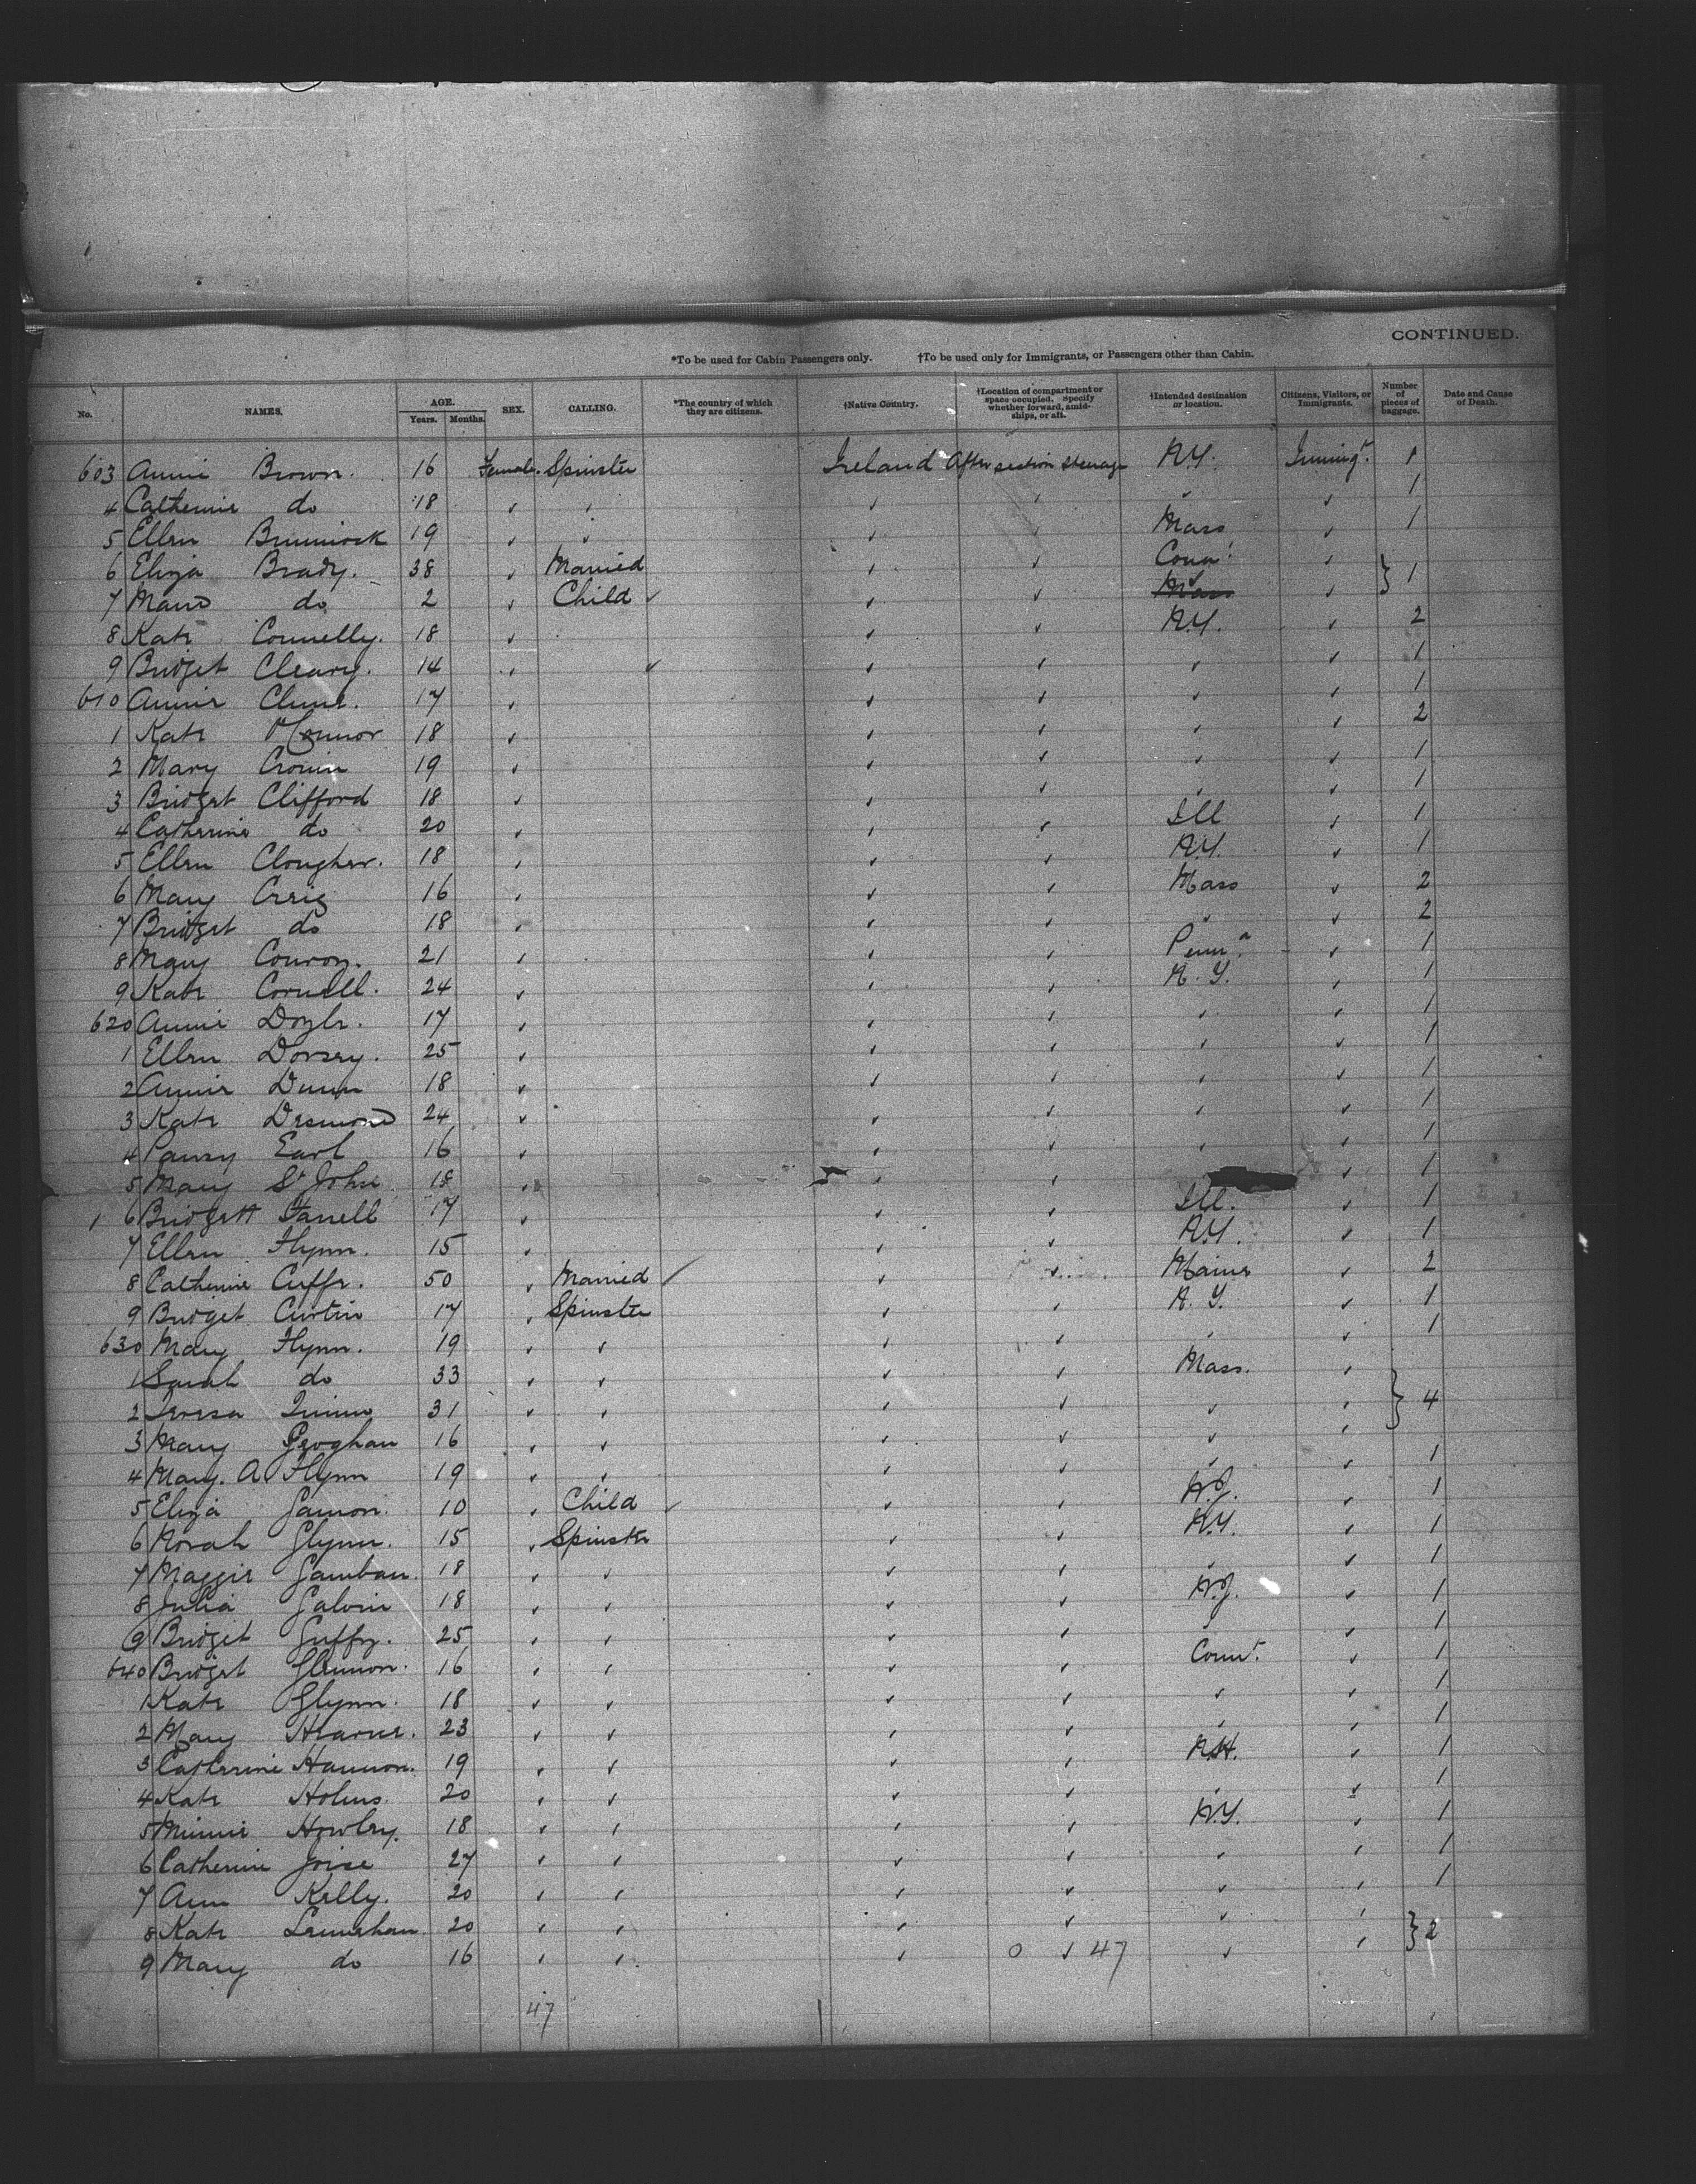 CONTINUED.
*To be used for Cabin Passengers only. †To be used only for Immigrants, or Passengers other than Cabin.
No. NAMES. AGE. Years. Months. SEX. CALLING. *The country of which they are citizens. †Native Country. †Location of compartment or space occupied. Specify whether forward, amidships, or aft. †Intended destination or location. Citizens, Visitors, or Immigrants. Number of pieces of baggage. Date and Cause of Death.
603 Annie Brown. 16 Female. Spinster Ireland After section Steerage N.Y. Immigt. 1
4 Catherine do 18 1
5 Ellen 19 Mass 1
6 Eliza Brady. 38 Married Conn. } 1
7 do 2 Child Mass
8 Kate Connelly. 18 N.Y. 2
9 Bridget Cleary. 14 1
610 Annie Clune. 17 1
1 Kate O'Connor 18 2
2 Mary Cronin 19 1
3 Bridget Clifford 18 1
4 Catherine do 20 Ill 1
5 Ellen Clougher. 18 N.Y. 1
6 Mary 16 Mass 2
7 Bridget do 18 2
8 Mary Conroy. 21 Penna. 1
9 Kate Cornell. 24 N.Y. 1
620 Annie Doyle. 17 1
1 Ellen Dorsey. 25 1
2 Annie Dunn 18 1
3 Kate Desmond 24 1
4 Earl 16 1
5 Mary St John 18 1
1 6 Bridgett Farrell 17 Ill. 1
7 Ellen Flynn. 15 N.Y. 1
8 Catherine Cuffe. 50 Married Maine 2
9 Bridget Curtin 17 Spinster N.Y. 1
630 Mary Flynn. 19 1
1 Sarah do 33 Mass. } 4
2 Teresa 31
3 Mary Geoghan 16
4 Mary. A Flynn 19 1
5 Eliza Gannon. 10 Child N.J. 1
6 Norah Glynn. 15 Spinster N.Y. 1
7 Maggie 18 1
8 Julia Galvin 18 N.J. 1
9 Bridget Guffy. 25 1
640 Bridget Glennon. 16 Conn. 1
1 Kate Glynn. 18 1
2 Mary Hearne. 23 1
3 Catherine Hannon. 19 N.H. 1
4 Kate Holms. 20 1
5 Minnie Howley. 18 N.Y. 1
6 Catherine Joise 27 1
7 Ann Kelly. 20 1
8 Kate Lenehan. 20 } 2
9 Mary do 16 0 47
47